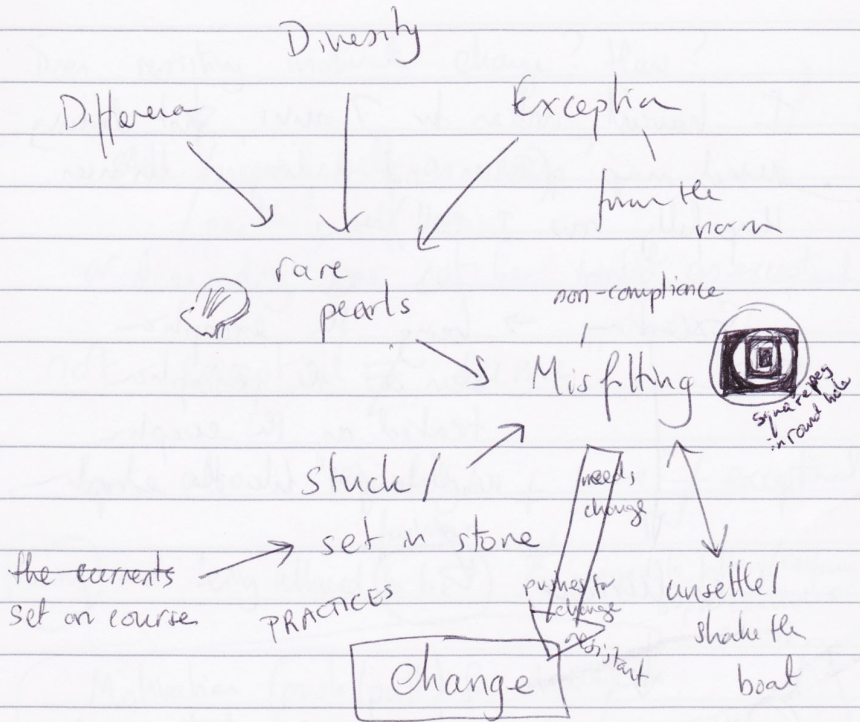 Diversity
Difference
Exception
from the
norm
rare
pearls
non-compliance
Misfitting
square peg
in round hole
stuck/
set in stone
needs
change
the currents
set on course
PRACTICES
pushes for
change
resistant
unsettle/
shake the
boat
Change